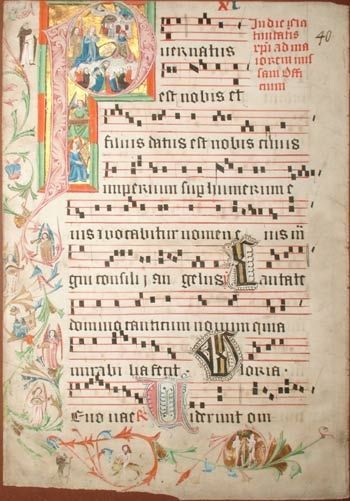 XL
In die sctā
natiuitatis
xp̄i ad ma
iorem mis
sam Off
cium
40
P
uer natus
est nobis et
filius datus est nobis cuius
imperium sup humerum e
ius et vocabitur nomen eius m̄
gni consilij angelus Cantate
domino canticum nouum quia
mirabilia fecit Gloria
Euouae Viderunt om